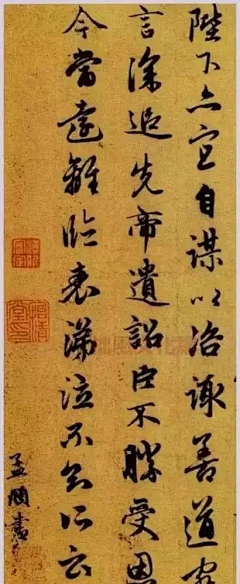 陛下亦宜自謀以咨諏善道察
言深追先帝遺詔臣不勝受恩
今當遠離臨表涕泣不知所云
孟頫書